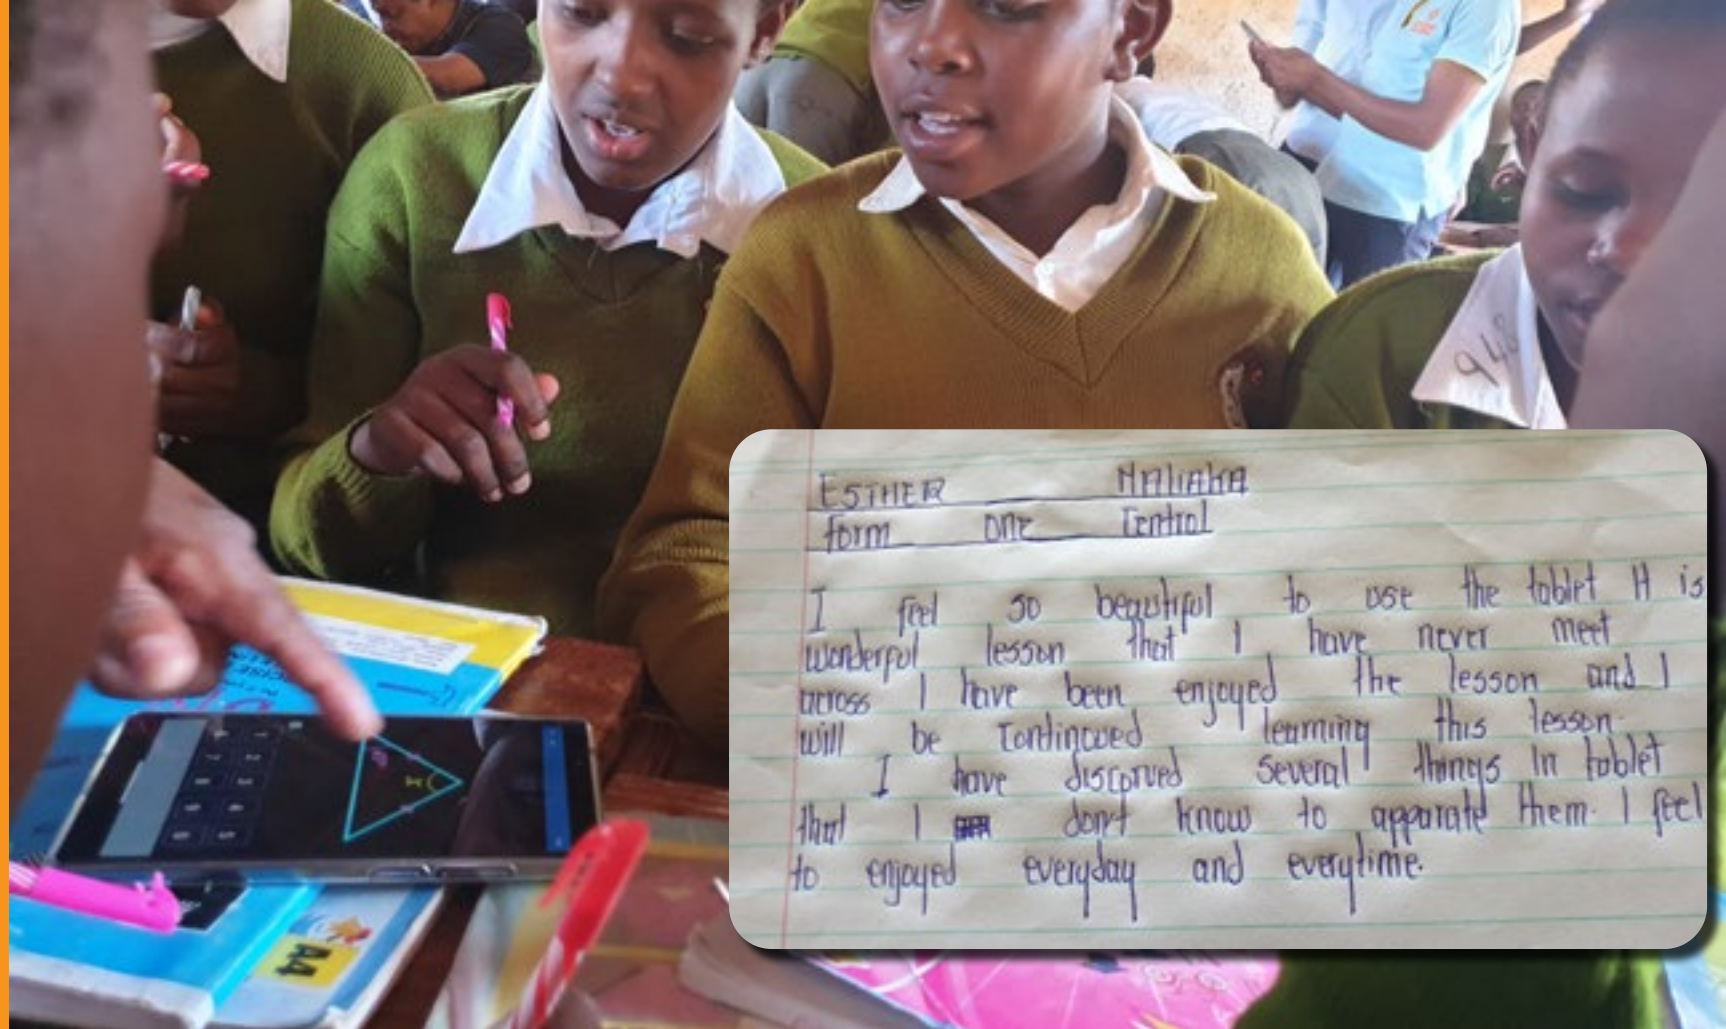 948
ESTHER MALIAKA
form one Central
I feel so beautiful to use the tablet It is
wonderful lesson that I have never meet
across I have been enjoyed the lesson and I
will be continoued learning this lesson.
I have discorved several things in tablet
that I don't know to apparate them. I feel
to enjoyed everyday and everytime.
A4